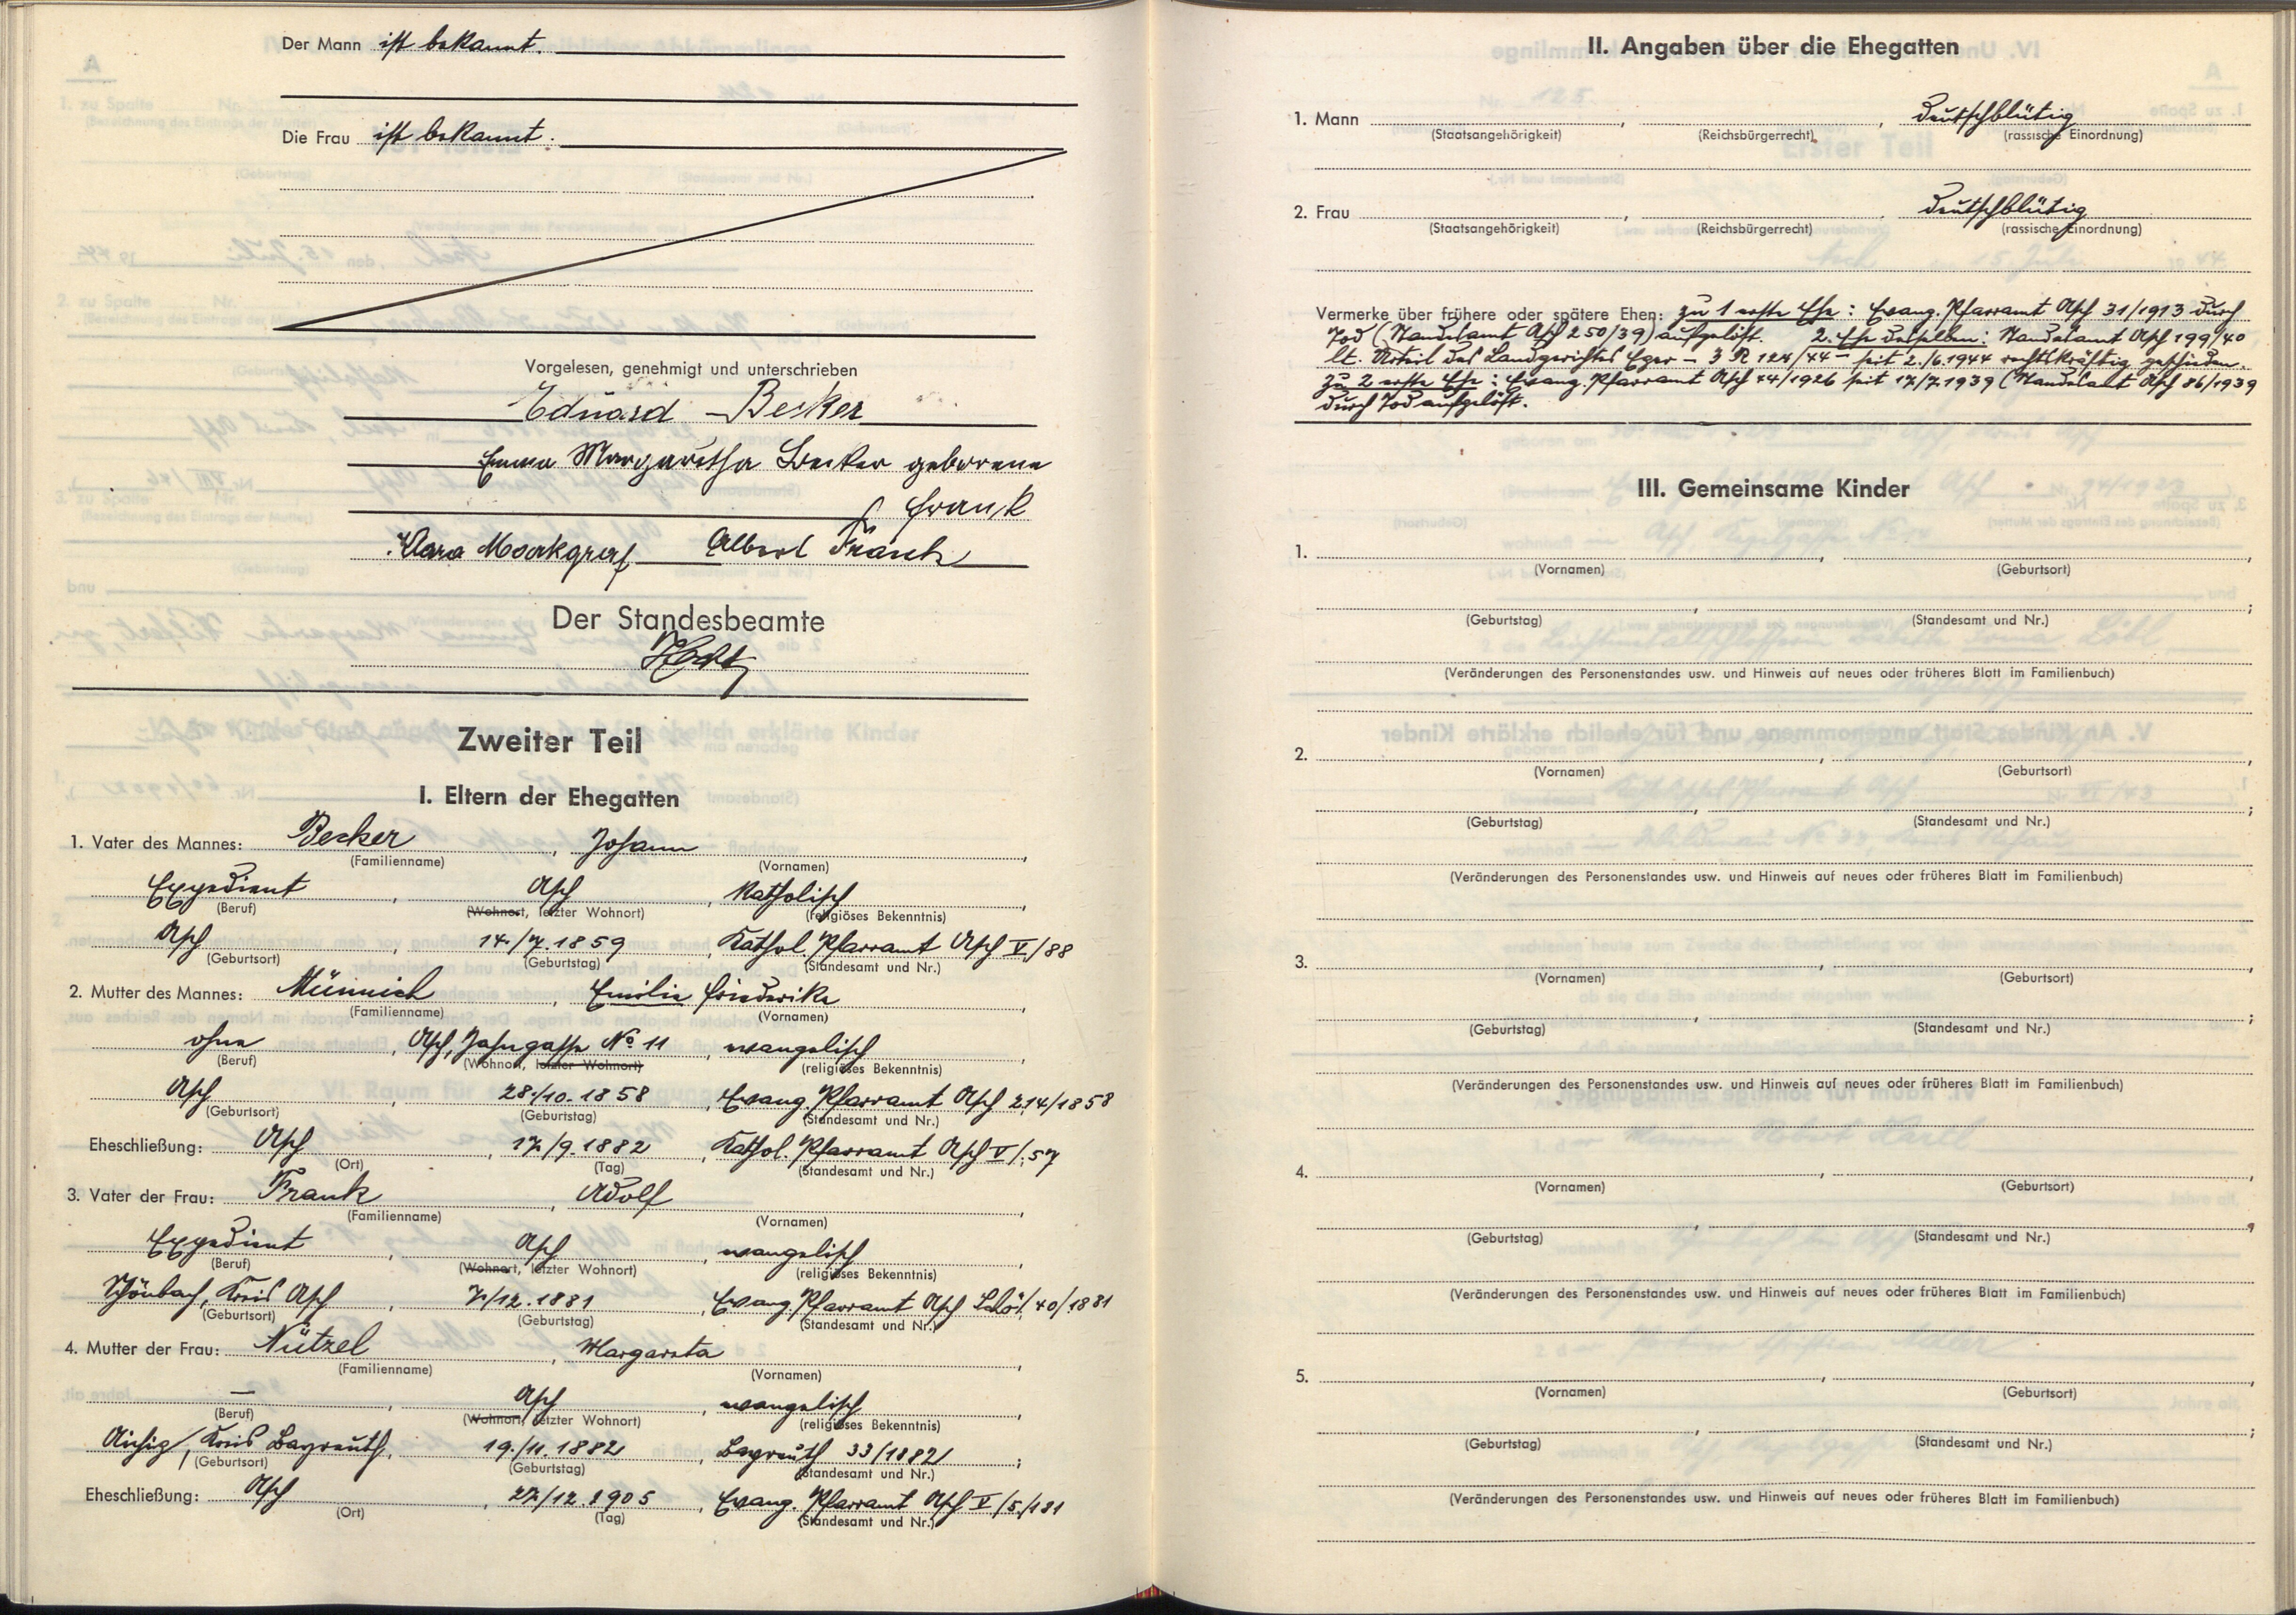 Der Mann ist bekannt.
Die Frau ist bekannt.
Vorgelesen, genehmigt und unterschrieben
Eduard Becker
Emma Margaretha Becker geborene
Frank
Klara Markgraf Albert Frank
Der Standesbeamte
Zweiter Teil
I. Eltern der Ehegatten
1. Vater des Mannes: Becker, Johann,
(Familienname) (Vornamen)
Expedient, Asch, katholisch,
(Beruf) (Wohnort, letzter Wohnort) (religiöses Bekenntnis)
Asch, 14./7.1859, Kathol. Pfarramt Asch V/88
(Geburtsort) (Geburtstag) (Standesamt und Nr.)
2. Mutter des Mannes: Münnich, Emilie Friederike,
(Familienname) (Vornamen)
ohne, Asch, Jahngasse No 11, evangelisch,
(Beruf) (Wohnort, letzter Wohnort) (religiöses Bekenntnis)
Asch, 28./10.1858, Evang. Pfarramt Asch 214/1858
(Geburtsort) (Geburtstag) (Standesamt und Nr.)
Eheschließung: Asch, 17./9.1882, Kathol. Pfarramt Asch V/57
(Ort) (Tag) (Standesamt und Nr.)
3. Vater der Frau: Frank, Adolf,
(Familienname) (Vornamen)
Expedient, Asch, evangelisch,
(Beruf) (Wohnort, letzter Wohnort) (religiöses Bekenntnis)
Schönbach, Kreis Asch, 7/12.1881, Evang. Pfarramt Asch 40/1881
(Geburtsort) (Geburtstag) (Standesamt und Nr.)
4. Mutter der Frau: Nützel, Margareta,
(Familienname) (Vornamen)
—, Asch, evangelisch,
(Beruf) (Wohnort, letzter Wohnort) (religiöses Bekenntnis)
Aichig, Kreis Bayreuth, 19./11.1882, Bayreuth 33/1882;
(Geburtsort) (Geburtstag) (Standesamt und Nr.)
Eheschließung: Asch, 27/12.1905, Evang. Pfarramt Asch V/5/181
(Ort) (Tag) (Standesamt und Nr.)
II. Angaben über die Ehegatten
1. Mann , , deutschblütig
(Staatsangehörigkeit) (Reichsbürgerrecht) (rassische Einordnung)
2. Frau , , deutschblütig
(Staatsangehörigkeit) (Reichsbürgerrecht) (rassische Einordnung)
Vermerke über frühere oder spätere Ehen: zu 1 erste Ehe: Evang. Pfarramt Asch 31/1913 durch
Tod (Standesamt Asch 250/39) aufgelöst. 2. Ehe desselben: Standesamt Asch 199/40
lt. Urteil des Landgerichtes Eger – 3 R 124/44 – seit 2./6.1944 rechtskräftig geschieden.
Zu 2 erste Ehe: Evang. Pfarramt Asch 44/1926 seit 17/7.1939 (Standesamt Asch 86/1939
durch Tod aufgelöst.
III. Gemeinsame Kinder
1. , ,
(Vornamen) (Geburtsort)
, ;
(Geburtstag) (Standesamt und Nr.)
(Veränderungen des Personenstandes usw. und Hinweis auf neues oder früheres Blatt im Familienbuch)
2. , ,
(Vornamen) (Geburtsort)
, ;
(Geburtstag) (Standesamt und Nr.)
(Veränderungen des Personenstandes usw. und Hinweis auf neues oder früheres Blatt im Familienbuch)
3. , ,
(Vornamen) (Geburtsort)
, ;
(Geburtstag) (Standesamt und Nr.)
(Veränderungen des Personenstandes usw. und Hinweis auf neues oder früheres Blatt im Familienbuch)
4. , ,
(Vornamen) (Geburtsort)
, ;
(Geburtstag) (Standesamt und Nr.)
(Veränderungen des Personenstandes usw. und Hinweis auf neues oder früheres Blatt im Familienbuch)
5. , ,
(Vornamen) (Geburtsort)
, ;
(Geburtstag) (Standesamt und Nr.)
(Veränderungen des Personenstandes usw. und Hinweis auf neues oder früheres Blatt im Familienbuch)